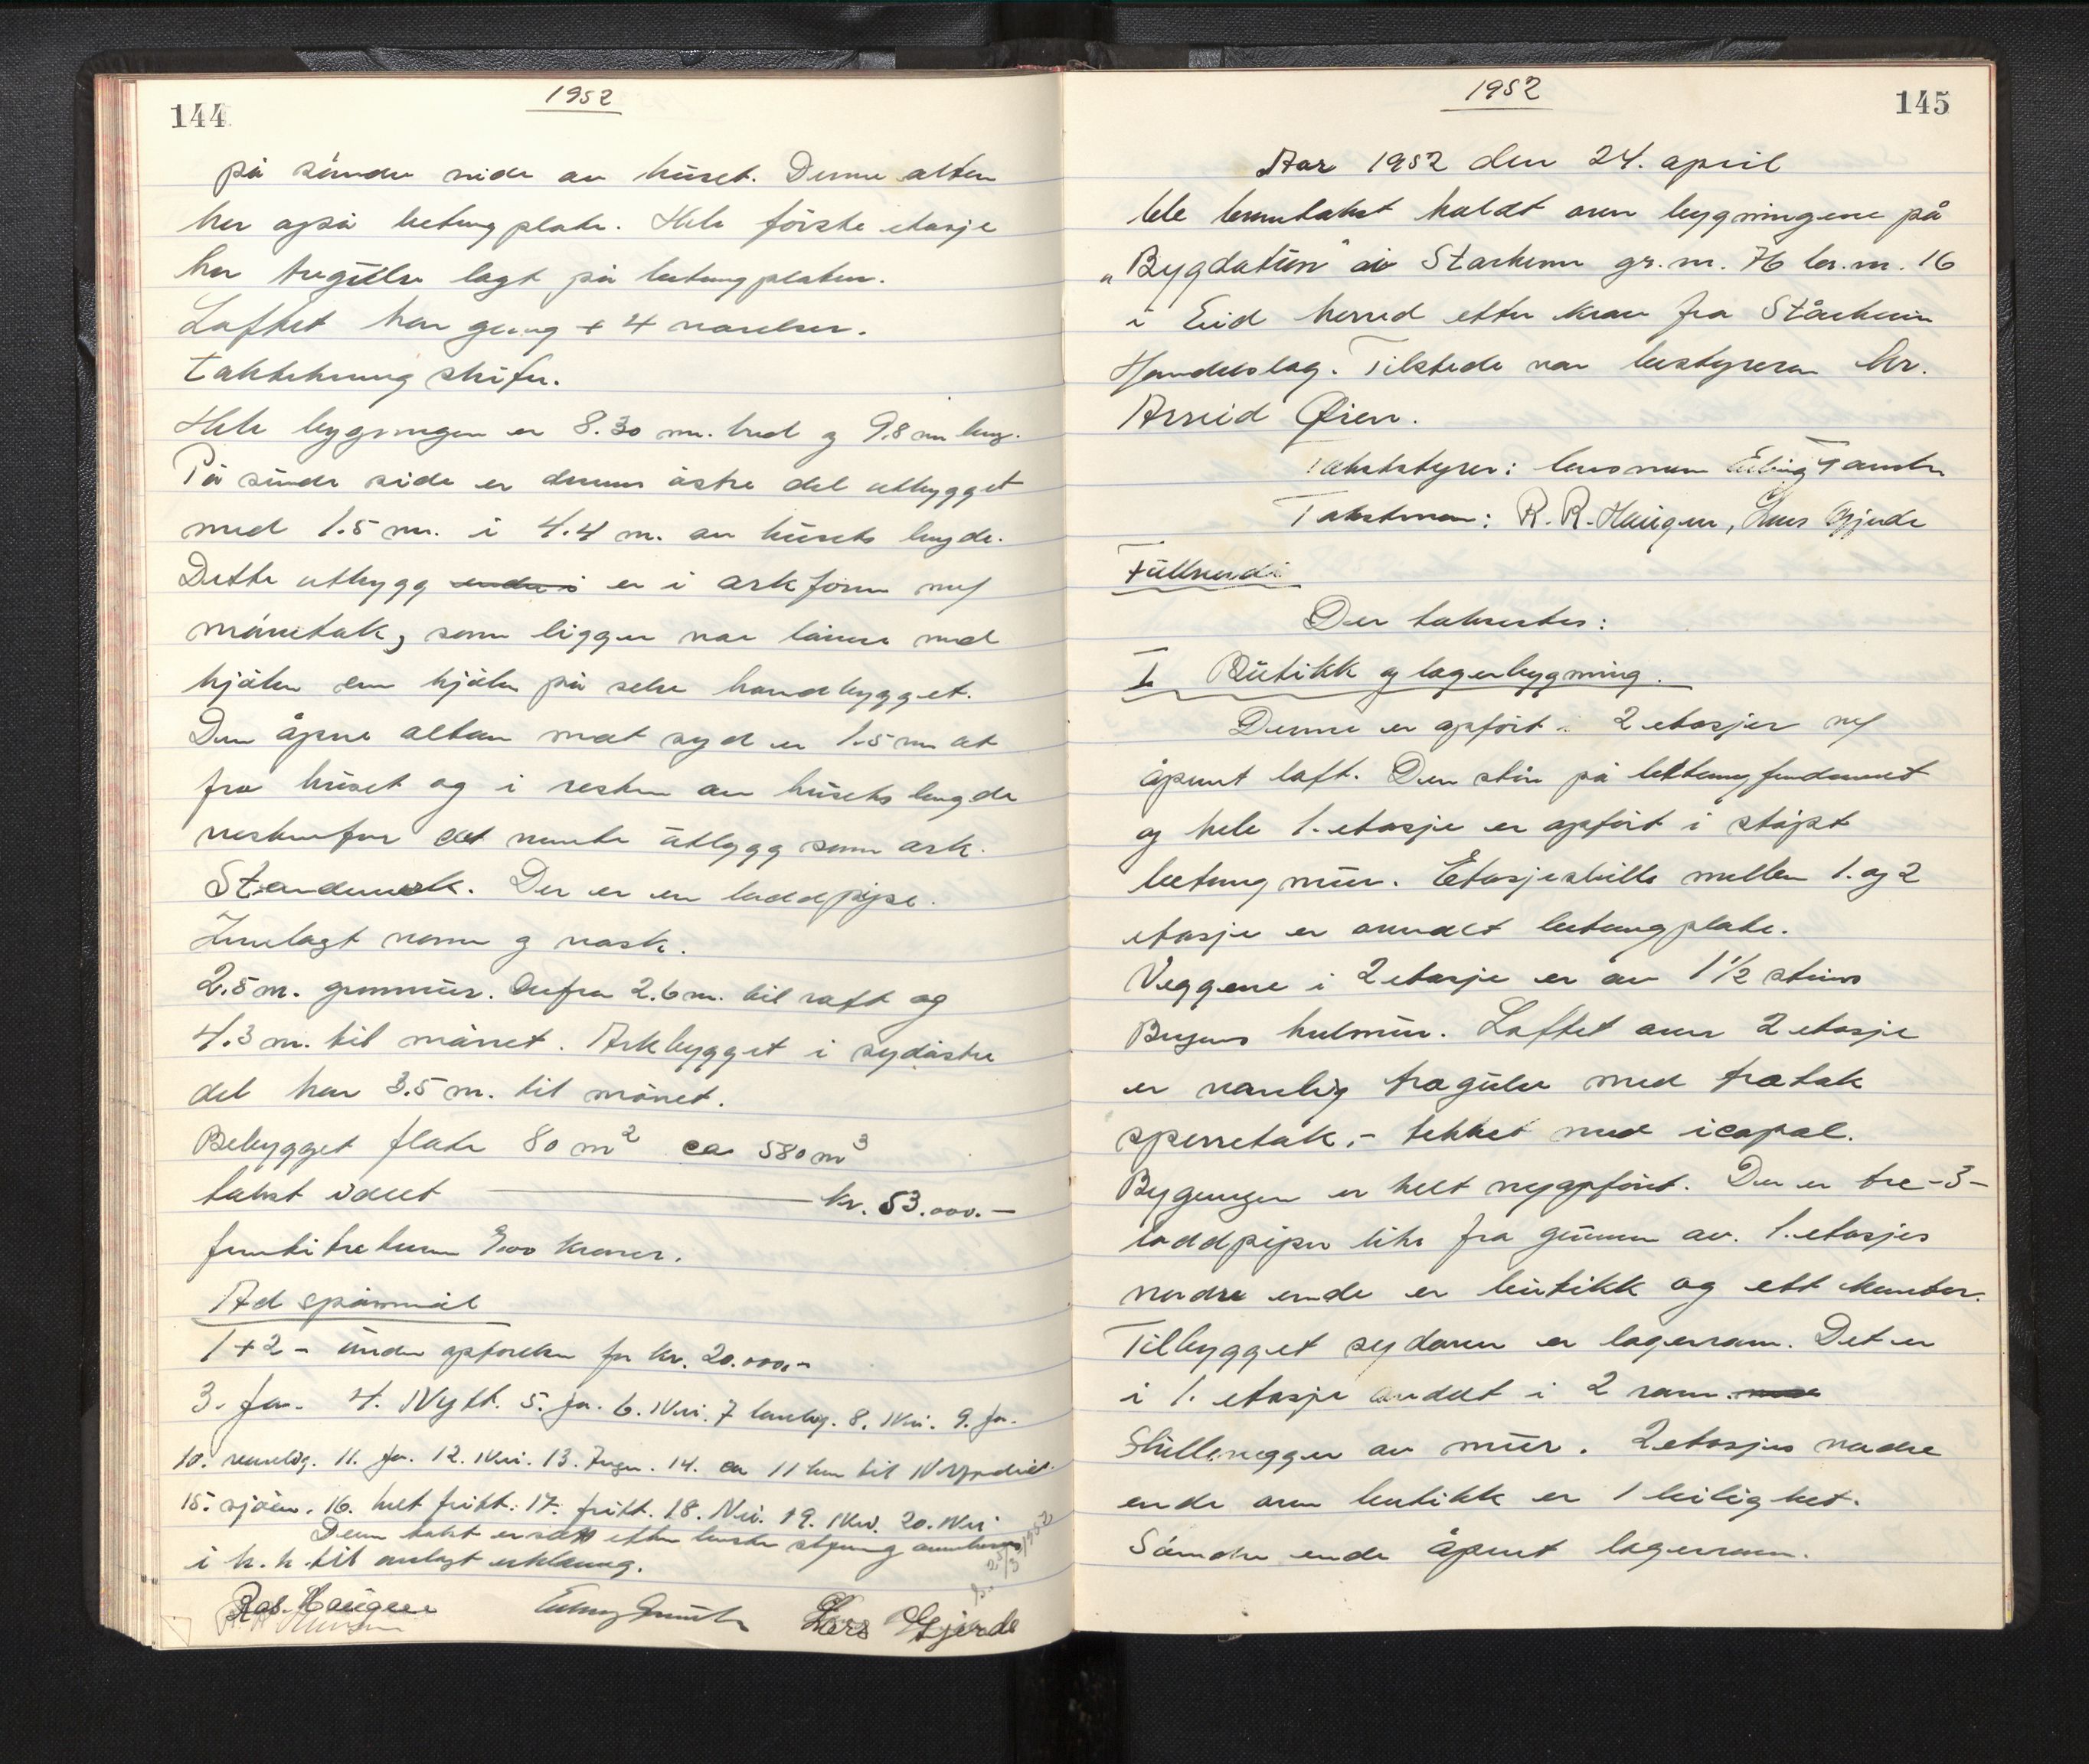 144
1952
på søndre side av huset. Denne altan
har også betongplate. Hele første etasje
har tregulv lagt på betongplaten.
Loftet har gang + 4 værelser.
Taktekning skifer.
Hele bygningen er 8.30 m. bred og 9.8 m lang.
På søndre side er dennes østre del utbygget
med 1.5 m. i 4.4 m. av husets lengde.
Dette utbygg er i arkform m/
mønetak, som ligger noe lavere med
hjålen enn hjålen på selve hovedbygget.
Den åpne altan mot syd er 1.5 m ut
fra huset og i resten av husets lengde
vestenfor det nevnte utbygg som ark.
Standverk. Der er en loddpipe.
Innlagt vann og vask.
2.5 m. grunnmur. Derfra 2.6 m. til raft og
4.3 m. til mønet. Arkbygget i sydøstre
del har 3.5 m. til mønet.
Bebygget flate 80 m² ca 580 m³
takst idørt kr. 53.000.-
femtitretusen 0/00 kroner.
Ad spørsmål
1+2 - under oppførelse for kr. 20.000,-
3. Ja. 4. Nytt. 5. Ja. 6. Nei. 7 lovlig. 8. Nei. 9. Ja.
10. vanlig. 11. Ja. 12. Nei. 13. Ingen. 14. ca 11 km til Nordfjordeid
15. sjøen. 16. helt fritt. 17. fritt. 18. Nei. 19. Nei. 20. Nei
Denne takst er satt etter beste skjønn og
i h. h. til avlagt erklæring.
25/3 1952
Ras. Haugen Lars Gjerde
145
1952
Aar 1952 den 24. april
ble branntakst holdt over bygningene på
„Bygdatun" av Starheim gr.nr. 76 br.nr. 16
i Eid herred etter krav fra Stårheim
Handelslag. Tilstede var bestyreren hr.
Arvid Øien.
Takststyrer: lensmann
Takstmenn: R. R. Haugen, Lars Gjerde
Fullverdi
Der takseres:
I Butikk og lagerbygning.
Denne er oppført i 2 etasjer m/
åpent loft. Den står på betongfundament
og hele 1. etasje er oppført i støpt
betong mur. Etasjeskille mellom 1. og 2
etasje er armert betongplate.
Veggene i 2 etasje er av 1½ steins
Bergens hulmur. Loftet over 2 etasje
er vanlig tregulv med tretak
sperretak, - tekket med icopal.
Bygningen er helt nyoppført. Der er tre -3-
loddpiper like fra grunnen av. 1. etasjes
nordre ende er butikk og ett kontor.
Tilbygget sydover er lagerrom. Det er
i 1. etasje inndelt i 2 rom.
Skillevegger av mur. 2 etasjes nordre
ende over butikk er 1 leilighet.
Søndre ende åpent lagerrom.